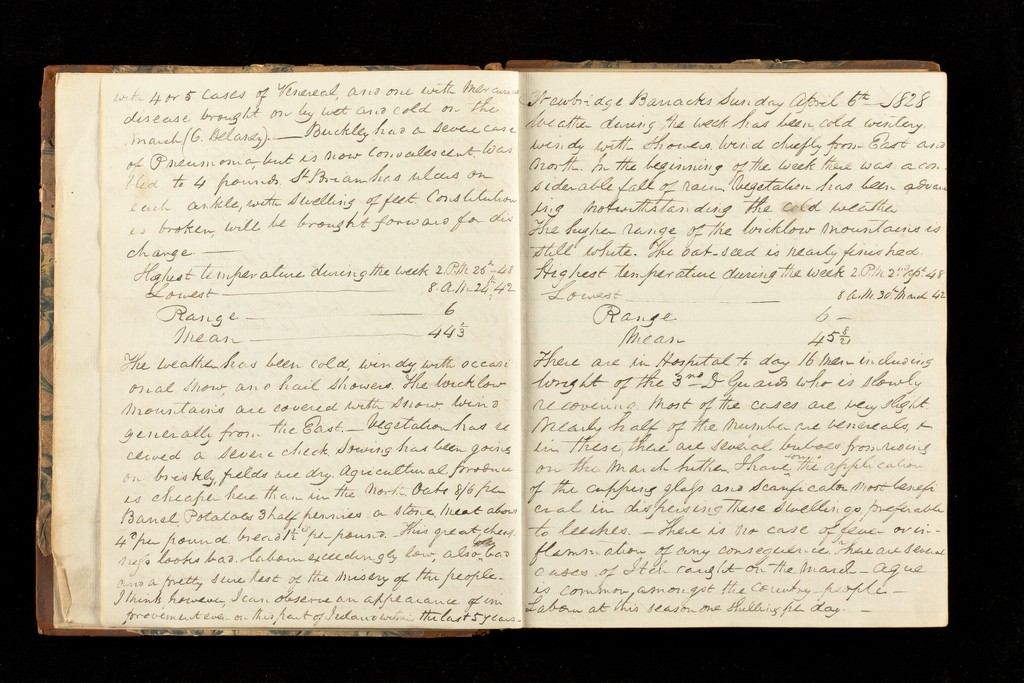 with 4 or 5 cases of Venereal and one with
disease brought on by wet and cold on the
march (C. Delaney). — Buckley had a severe case
of Pneumonia, but is now Convalescent. Was
bled to 4 pounds. St Brian has ulcers on
each ankle, with swelling of feet Constitution
is broken, will be brought forward for dis
charge —
Highest temperature during the week 2 P.M. 26th – 48
Lowest — 8 A.M. 24th 42
Range — 6
Mean — 44 1/3
The weather has been cold, windy with occasi
onal snow, and hail showers. The Wicklow
Mountains are covered with snow. Wind
generally from the East. — Vegetation has re
ceived a severe check. Sowing has been going
on briskly, fields are dry. Agricultural produce
is cheaper here than in the North. Oats 8/6 per
Barrel, Potatoes 3 half pennies a stone, Meat about
4d per pound, bread 1½d per pound. This great cheap
ness looks bad. Labour exceedingly low, also, bad
and a pretty sure test of the misery of the people —
I think however, I can observe an appearance of im
provement even in this part of Ireland within the last 5 years —
Newbridge Barracks Sunday April 6th — 1828
Weather during the week has been cold wintery
windy with showers. Wind chiefly from East and
North. In the beginning of the week there was a con
siderable fall of rain. Vegetation has been advanc
ing notwithstanding the cold weather
The higher range of the Wicklow mountains is
still white. The oat-seed is nearly finished.
Highest temperature during the week 2 P.M. 2nd Apl. 48
Lowest — 8 A.M. 30th March 42
Range 6 —
Mean 45 8/21
There are in Hospital to day 16 men including
Wright of the 3rd D Guards who is slowly
recovering. Most of the cases are very slight.
Nearly half of the number are venereals, &
in these, there are several buboes from riding
on the march hither. I have found the application
of the cupping glass and scarificator most benefi
cial in dispersing these swellings, preferable
to leeches. — There is no case of fever or in-
flammation of any consequence. There are several
cases of Itch caught on the march — ague
is common, amongst the Country-people —
Labour at this season one shilling per day. —